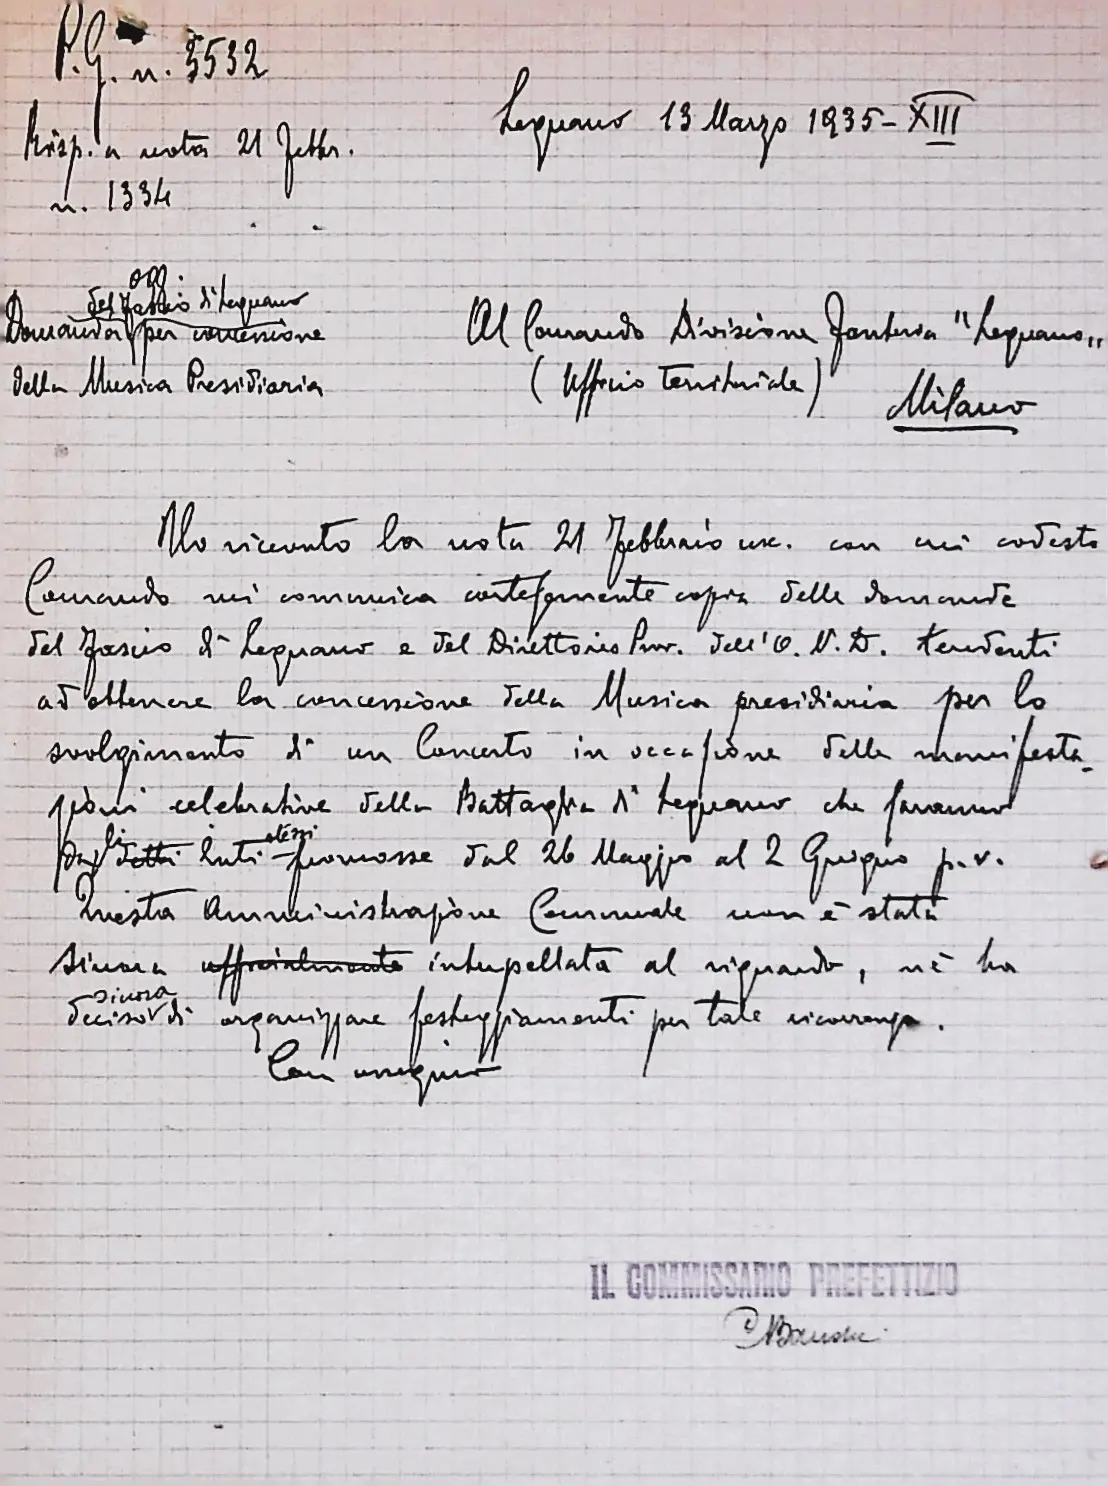 P.G. n. 3532
Legnano 13 Marzo 1935-XIII
Risp. a nota 21 Febbr.
n. 1334
Ogg.
del Fascio di Legnano
Domanda per concessione
della Musica Presidiaria
Al Comando Divisione Fanteria "Legnano"
(Ufficio Territoriale)
Milano
Ho ricevuto la nota 21 Febbraio usc. con cui codesto
Comando mi comunica cortesemente copia delle domande
del Fascio di Legnano e del Direttorio Prov. dell'O.N.D. tendenti
ad ottenere la concessione della Musica presidiaria per lo
svolgimento di un Concerto in occasione delle manifesta-
zioni celebrative della Battaglia di Legnano che saranno
dagli detti Enti stessi promosse dal 26 Maggio al 2 Giugno p.v.
Questa Amministrazione Comunale non è stata
sinora ufficialmente interpellata al riguardo, nè ha
sinora
deciso di organizzare festeggiamenti per tale ricorrenza.
Con ossequio
IL COMMISSARIO PREFETTIZIO